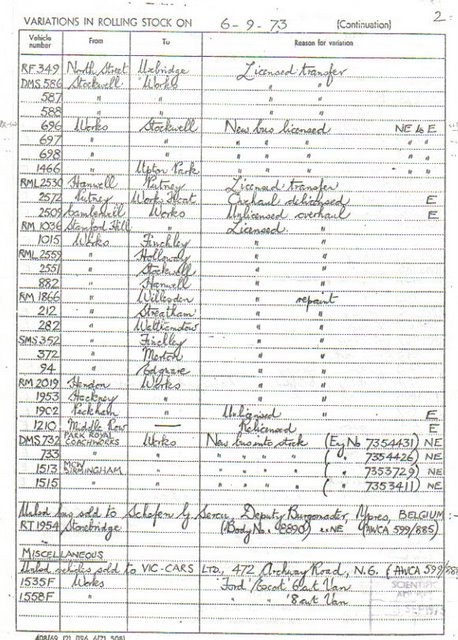 2
VARIATIONS IN ROLLING STOCK ON 6-9-73 (Continuation)
Vehicle number From To Reason for variation
RF 349 North Street Uxbridge Licensed transfer
DMS 586 Stockwell Works " "
587 " " " "
588 " " " "
696 Works Stockwell New bus licensed NE to E
697 " " " " " "
698 " " " " " "
1466 " Upton Park " " " "
RML 2530 Hanwell Putney Licensed transfer
2572 Putney Works Float Overhaul delicensed E
2509 Camberwell Works Unlicensed overhaul E
RM 1036 Stamford Hill " Licensed "
1015 Works Finchley " "
RML 2559 " Holloway " "
2551 " Stockwell " "
882 " Hanwell " "
RM 1866 " Willesden " repaint
212 " Streatham " "
282 " Walthamstow " "
SMS 352 " Finchley " "
372 " Merton " "
94 " Edgware " "
RM 2019 Hendon Works " "
1953 Hackney " " "
1902 Peckham " Unlicensed " E
1210 Middle Row — Relicensed E
DMS 732 PARK ROYAL COACHWORKS Works New bus into stock (Eng No 7354431) NE
733 " " " " " ( " 7354426) NE
1513 MCW BIRMINGHAM " " " " ( " 7353729) NE
1515 " " " " " ( " 7353411) NE
Unlcd bus sold to Schepen G. Sercu, Deputy Burgomaster, Ypres, BELGIUM
RT 1954 Stonebridge (Body No. 8890) NE (AWCA 599/885)
MISCELLANEOUS
Unlcd vehicles sold to VIC-CARS LTD., 472 Archway Road, N.6. (AWCA 599/
1535F Works Ford 'Escort' 6cwt Van
1558F " " " 8cwt Van
SCIENTIFI
408/69